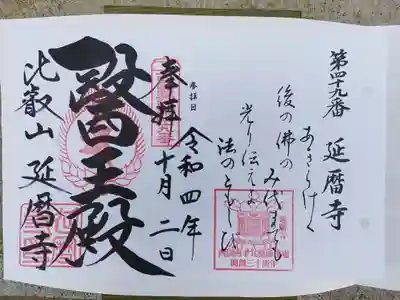 第四十九番 延暦寺
あきらけく
後の佛の
み代までも
光り伝えよ
法のともしび
開創三十周年
参拝日
令和四年
十月二日
奉拝
醫王殿
比叡山 延暦寺